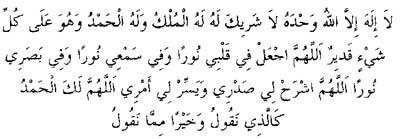 لَا إِلَهَ إِلاَّ اللهُ وَحْدَهُ لاَ شَرِيكَ لَهُ لَهُ الْمُلْكُ وَلَهُ الْحَمْدُ وَهُوَ عَلَى كُلِّ
شَيْءٍ قَدِيرٌ اَللَّهُمَّ اجْعَلْ فِي قَلْبِي نُورًا وَفِي سَمْعِي نُورًا وَفِي بَصَرِي
نُورًا اَللَّهُمَّ اشْرَحْ لِي صَدْرِي وَيَسِّرْ لِي أَمْرِي اَللَّهُمَّ لَكَ الْحَمْدُ
كَالَّذِي نَقُولُ وَخَيْرًا مِمَّا نَقُولُ